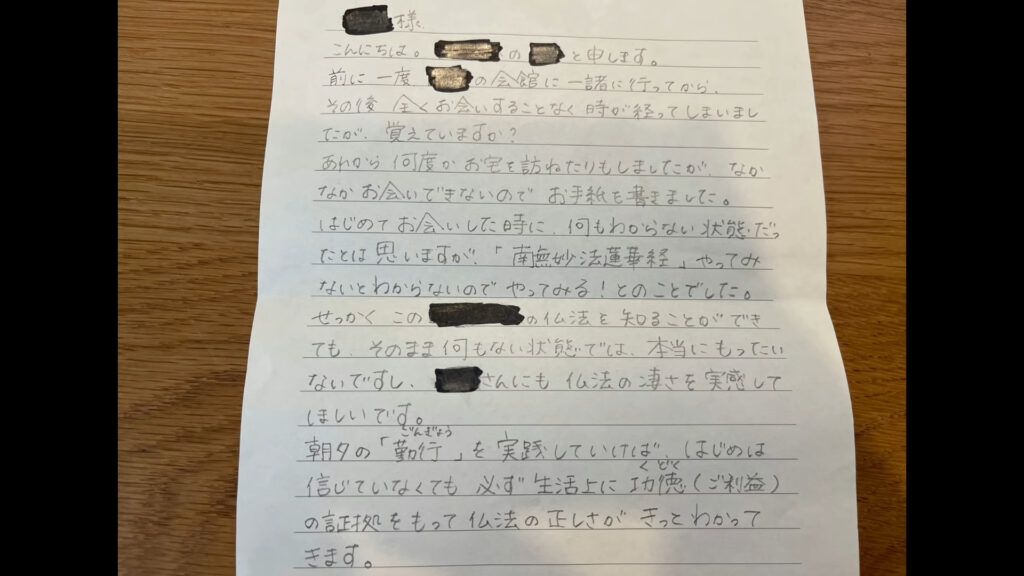 様
こんにちは。 の と申します。
前に一度 の会館に一諸に行ってから、
その後 全くお会いすることなく時が経ってしまいまし
たが、覚えていますか?
あれから何度かお宅を訪ねたりもしましたが、なか
なかお会いできないので お手紙を書きました。
はじめてお会いした時に、何もわからない状態だっ
たとは思いますが、「南無妙法蓮華経」やってみ
ないとわからないので やってみる!とのことでした。
せっかく この の仏法を知ることができ
ても、そのまま何もない状態では、本当にもったい
ないですし、 さんにも 仏法の凄さを実感して
ほしいです。
ごんぎょう
朝夕の「勤行」を実践していけば、はじめは
くどく
信じていなくても 必ず生活上に功徳(ご利益)
の証拠をもって仏法の正しさが きっとわかって
きます。